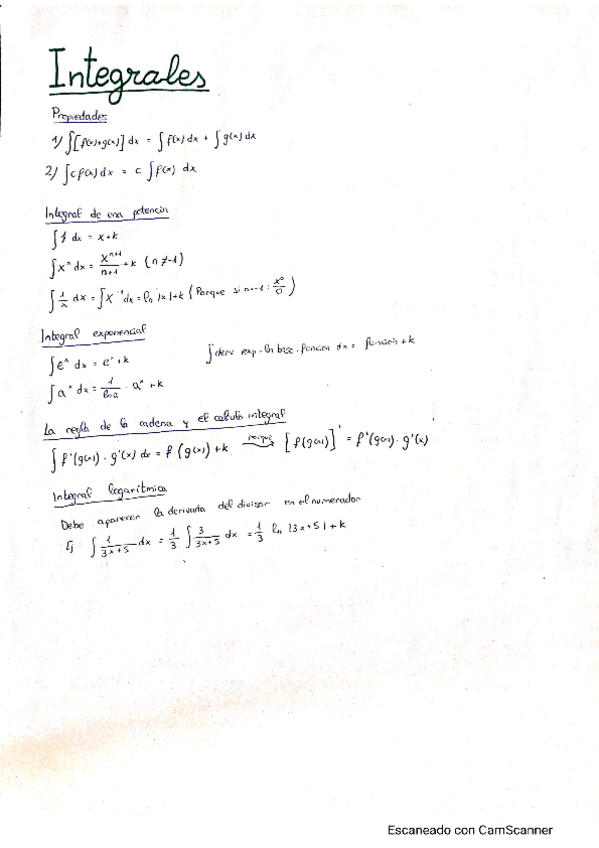 Integrales
Propiedades
1) ∫[f(x)+g(x)] dx = ∫f(x) dx + ∫g(x) dx
2) ∫c f(x) dx = c ∫f(x) dx
Integral de una potencia
∫1 dx = x+k
∫xⁿ dx = xⁿ⁺¹/n+1 + k (n ≠ -1)
∫1/x dx = ∫x⁻¹ dx = ln |x| + k (Porque si n=-1 : x⁰/0)
Integral exponencial
∫eˣ dx = eˣ + k
∫deriv exp · ln base · función dx = función + k
∫aˣ dx = 1/ln a · aˣ + k
La regla de la cadena y el calculo integral
∫f'(g(x)) · g'(x) dx = f(g(x)) + k porque → [f(g(x))]' = f'(g(x)) · g'(x)
Integral logarítmica
Debe aparecer la derivada del divisor en el numerador
Ej ∫1/3x+5 dx = 1/3 ∫3/3x+5 dx = 1/3 ln |3x+5| + k
Escaneado con CamScanner